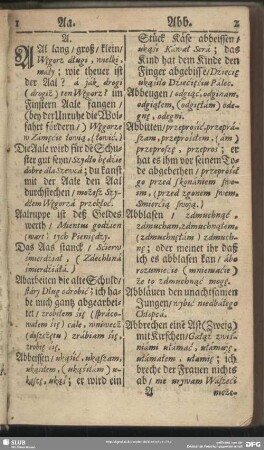 1 Aa. Abb. 2
A.
AAll lang/ groß/ klein/
Węgorz długi, wielki,
mały; wie theuer ist
der Aal? á jak drogi
(drogiż) ten Węgorz? im
Finstern Aale fangen/
(bey der Unruhe die Wol-
fahrt fördern) Węgorze
w Zamęcie łowić.
Die Aale wird für de Schu-
ster gut seyn/ Szydło będzie
dobre dla Szewcá; du kanst
mit der Aale den Aal
durchstechen/ możesz Szy-
dłem Węgorzá przekłoć.
Aalruppe ist deß Geldes
werth/ Mientuz godzien
(wart) tych Pieniędzy.
Das Aas stanck/ Scierw
śmierdział,
śmierdziáłá.
Abarbeiten die alte Schuld/
stáry Dług odrobić; ich ha-
be mich gantz abgearbei-
tet/ zrobiłem się (sprácó-
wałem się) cále,
zrabiam się,
zrobię się.
Abbeissen/ ukąśić, ukąszam,
ukąśiłem,
ukąszę, ukąś; er wird ein
Stück Käse abbeissen/
ukąśi Káwał Será; das
Kind hat dem Kinde den
Finger abgebissen/ Dziecię
ukąśiło Dziecięciu Pálec.
Abbeugen/ odgiąć, odginam,
odgiąłem,
odegnę, odegni.
Abbitten/ przeprośić, przeprá-
szam, przeprośiłem,
przeproszę, przeproś; er
hat es ihm vor seinem To-
de abgebethen/ przeprośił
go przed skonániem swo-
im,
Śmierćią swoją.
Abblasen/ zdmuchnąć,
zdmucham, zdmuchnąłem,
zdmuch-
nę; oder meinet ihr daß
ich es abblasen kan/ ábo
rozumiećie (mniemaćie)
że to zdmuchnąć mogę.
Abbläuen den unachtsamen
Jungen/ wybić niedbáłego
Chłopcá.
Abbrechen eine Ast (Zweig)
mit Kirschen/ Gáłąź z wi-
śniámi ułamáć, ułamuję,
ułamałem, ułamię; ich
breche der Frauen nichts
ab/ nie urywam Wászeći
A